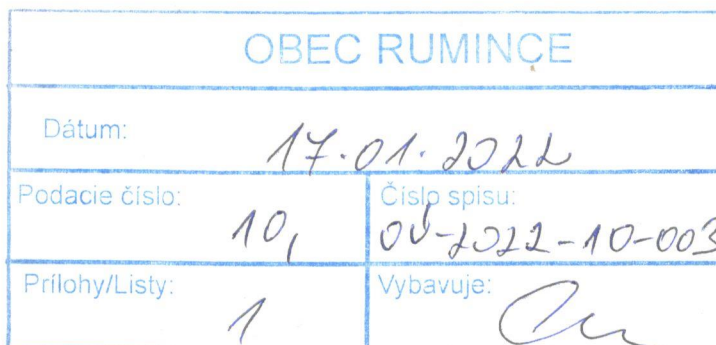 OBEC RUMINCE
Dátum: 17.01.2022
Podacie číslo: 10, Číslo spisu: OÚ-2022-10-003
Prílohy/Listy: 1 Vybavuje: